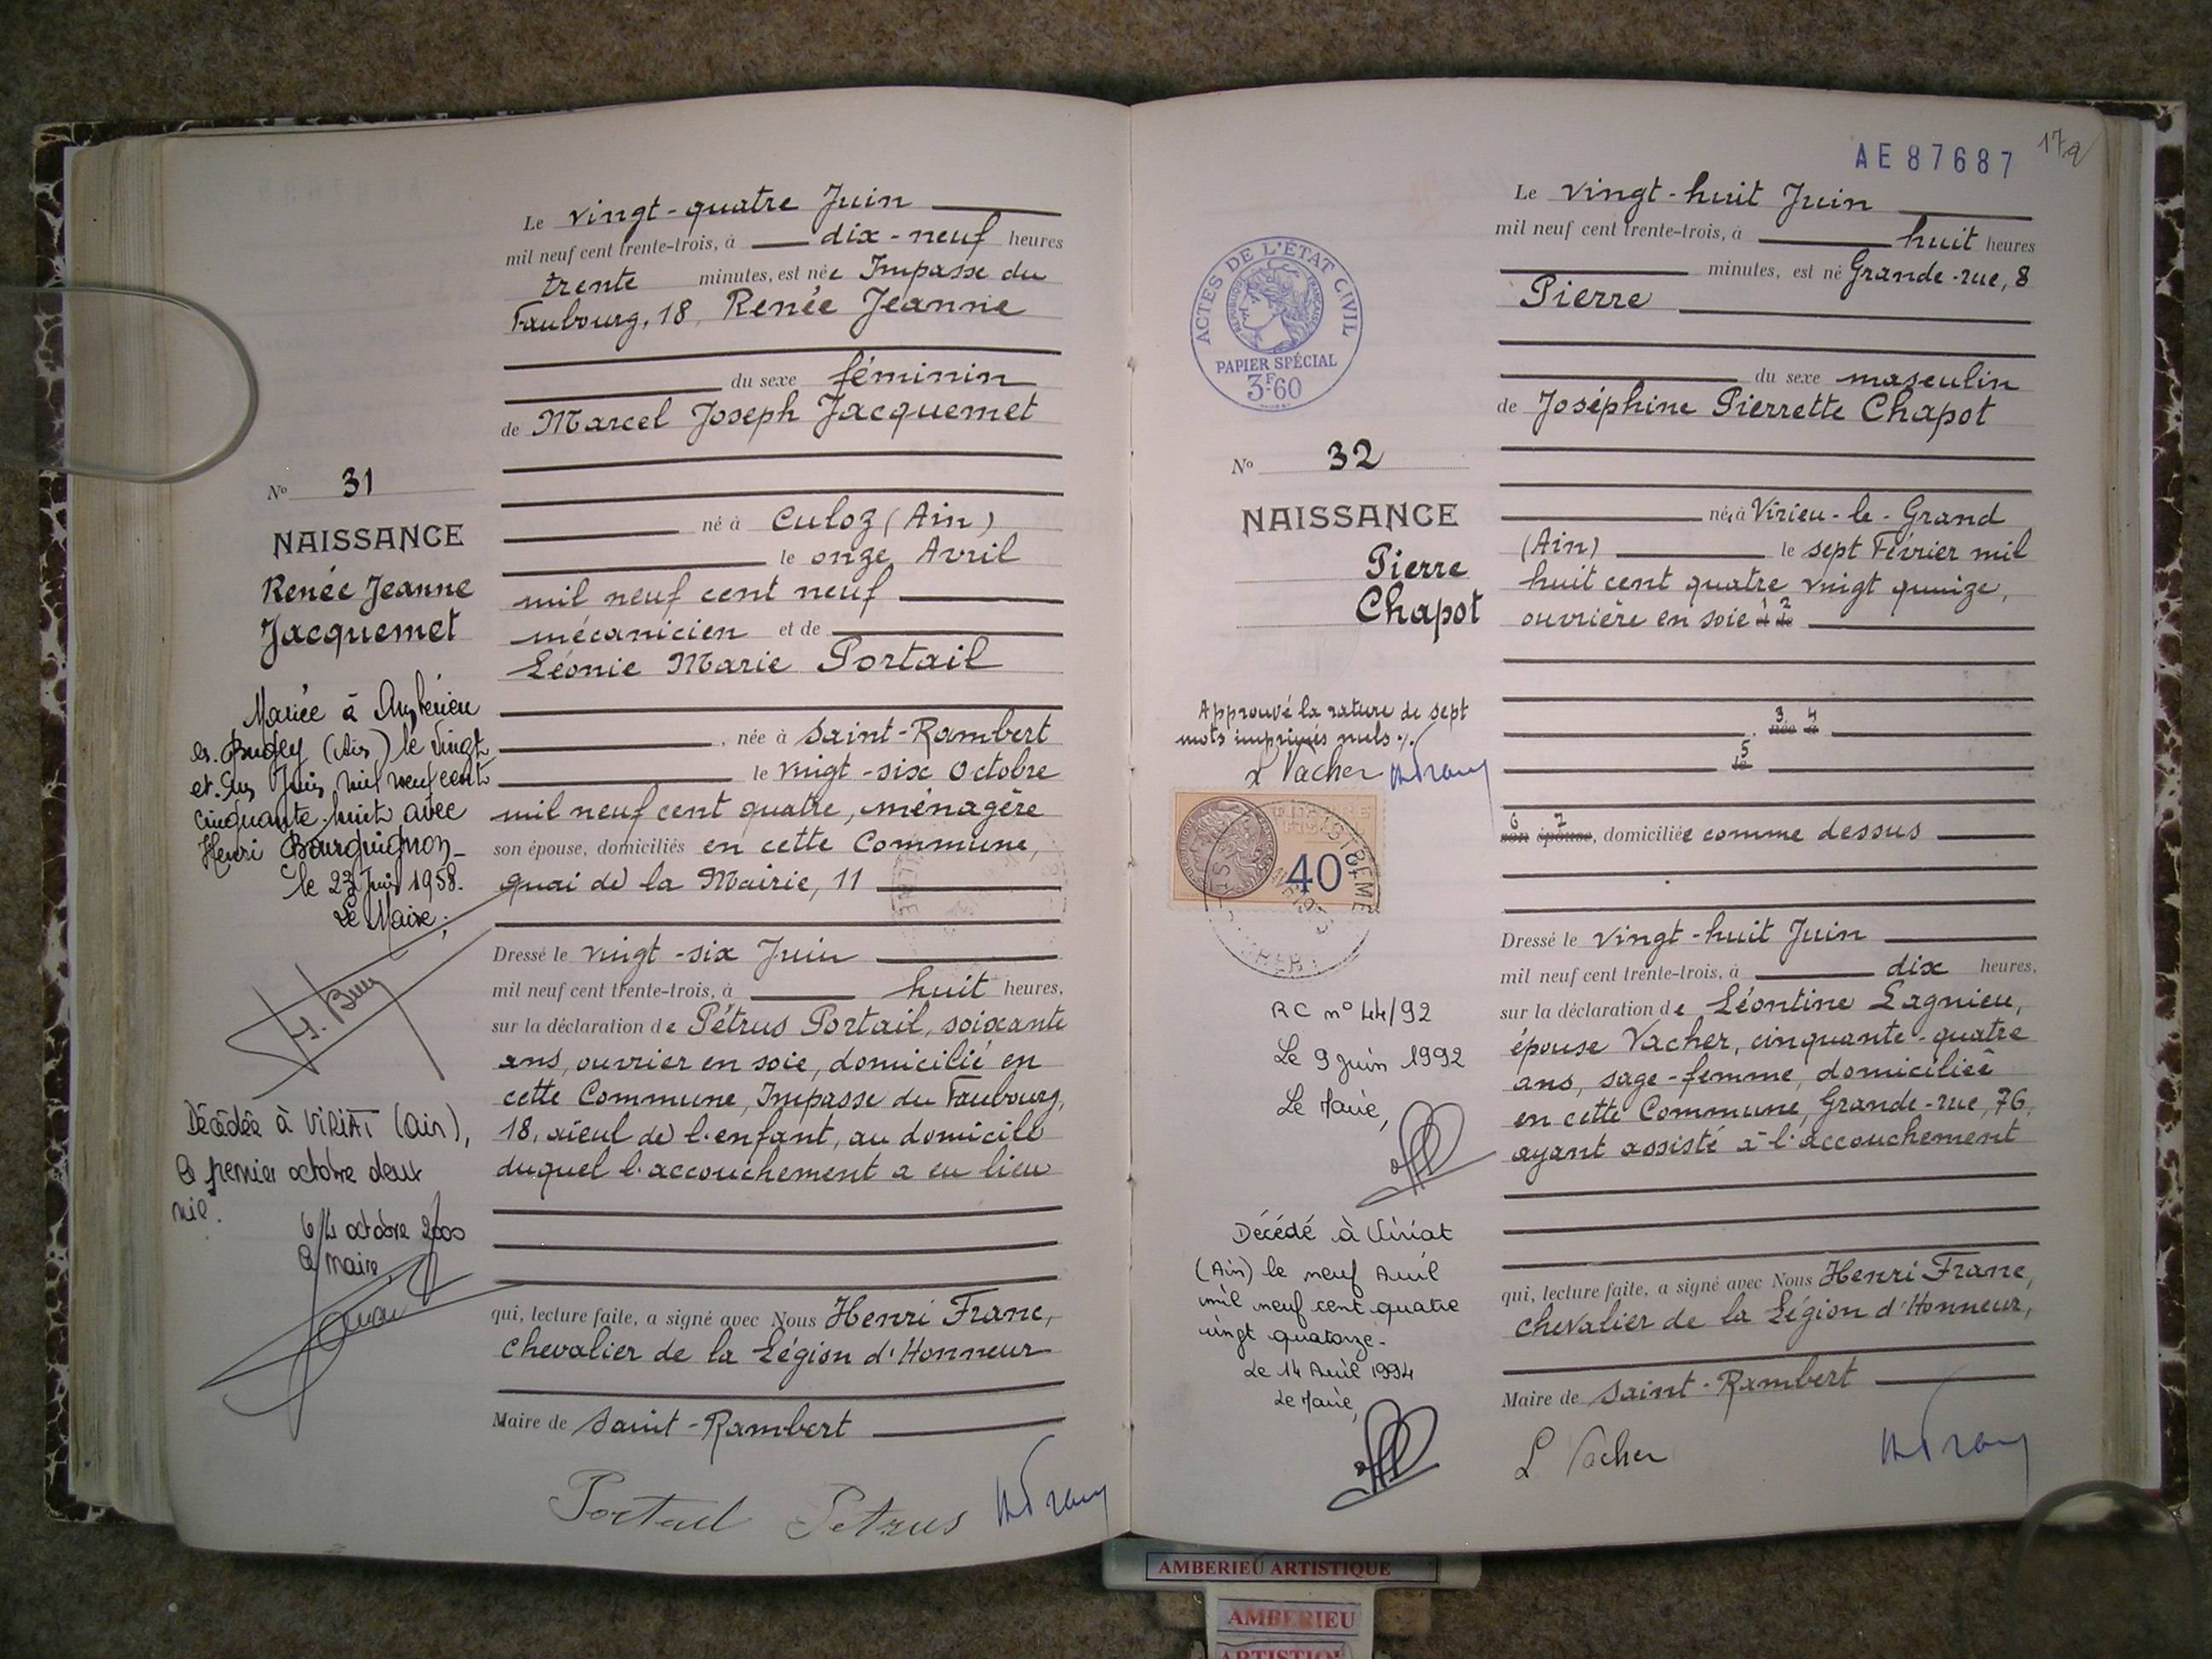 Le vingt-quatre Juin
mil neuf cent trente-trois, à dix-neuf heures
trente minutes, est née Impasse du
Faubourg, 18, Renée Jeanne
du sexe féminin
de Marcel Joseph Jacquemet
né à Culoz (Ain)
le onze Avril
mil neuf cent neuf
mécanicien et de
Léonie Marie Portail
, née à Saint-Rambert
le vingt-six Octobre
mil neuf cent quatre, ménagère
son épouse, domiciliés en cette Commune,
quai de la Mairie, 11
Dressé le vingt-six Juin
mil neuf cent trente-trois, à huit heures,
sur la déclaration de Pétrus Portail, soixante
ans, ouvrier en soie, domicilié en
cette Commune, Impasse du Faubourg,
18, aïeul de l'enfant, au domicile
duquel l'accouchement a eu lieu
qui, lecture faite, a signé avec Nous Henri Franc,
Chevalier de la Légion d'Honneur
Maire de Saint-Rambert
Portail Pétrus
No 31
NAISSANCE
Renée Jeanne
Jacquemet
Mariée à Ambérieu
en Bugey (Ain) le vingt
et un Juin mil neuf cent
cinquante-huit avec
Henri Bourguignon
le 23 Juin 1958.
Le Maire,
Décédée à VIRIAT (Ain),
le premier octobre deux
mil.
le 4 octobre 2000
le maire,
AE87687
Le vingt-huit Juin
mil neuf cent trente-trois, à huit heures
minutes, est né Grande-rue, 8
Pierre
du sexe masculin
de Joséphine Pierrette Chapot
née à Virieu-le-Grand
(Ain) le sept Février mil
huit cent quatre vingt quinze,
ouvrière en soie 1 2
3 4
née à
5
le
6 7
son épouse, domiciliée comme dessus
Dressé le vingt-huit Juin
mil neuf cent trente-trois, à dix heures,
sur la déclaration de Léontine Lagnieu,
épouse Vacher, cinquante-quatre
ans, sage-femme, domiciliée
en cette Commune, Grande-rue, 76,
ayant assisté à l'accouchement
qui, lecture faite, a signé avec Nous Henri Franc,
Chevalier de la Légion d'Honneur,
Maire de Saint-Rambert
L Vacher
ACTES DE L'ÉTAT CIVIL
RÉPUBLIQUE FRANÇAISE
PAPIER SPÉCIAL
3F60
No 32
NAISSANCE
Pierre
Chapot
Approuvé la rature de sept
mots imprimés nuls ./.
L Vacher
40
RC n° 44/92
Le 9 Juin 1992
Le Maire,
Décédé à Viriat
(Ain) le neuf Avril
mil neuf cent quatre
vingt quatorze.
Le 14 Avril 1994
Le Maire,
AMBERIEU ARTISTIQUE
AMBERIEU
ARTISTIQUE